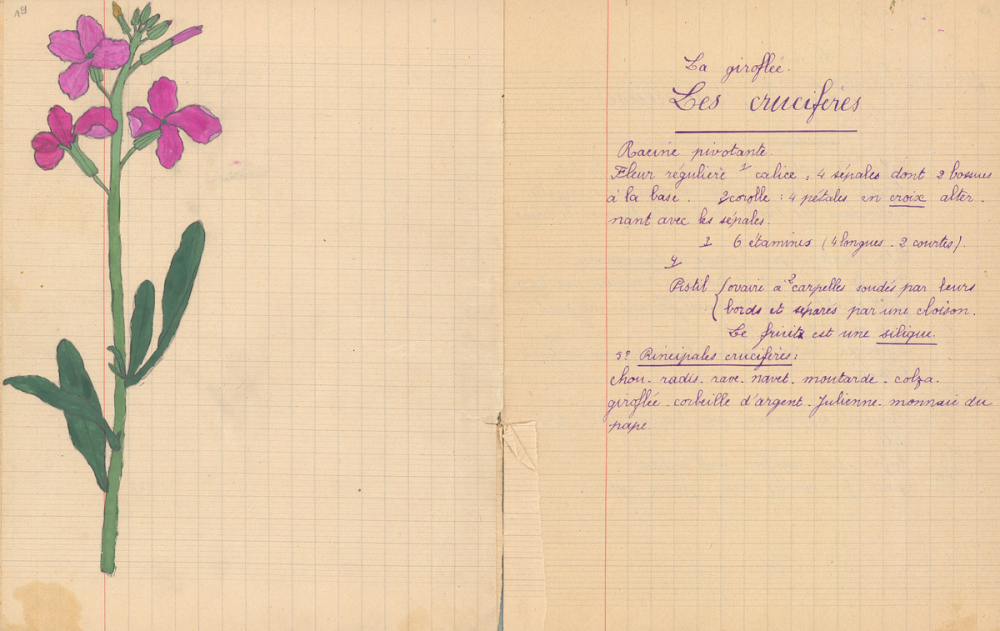 19
La giroflée.
Les crucifères
Racine pivotante.
Fleur régulière 1 calice : 4 sépales dont 2 bossues
à la base. 2 corolle : 4 pétales en croix alter-
nant avec les sépales.
3 6 étamines (4 longues - 2 courtes).
4
Pistil { ovaire à 2 carpelles soudés par leurs
bords et séparés par une cloison.
Le fruit est une silique.
5º Principales crucifères :
chou - radis - rave - navet - moutarde - colza -
giroflée - corbeille d'argent - Julienne - monnaie du
pape